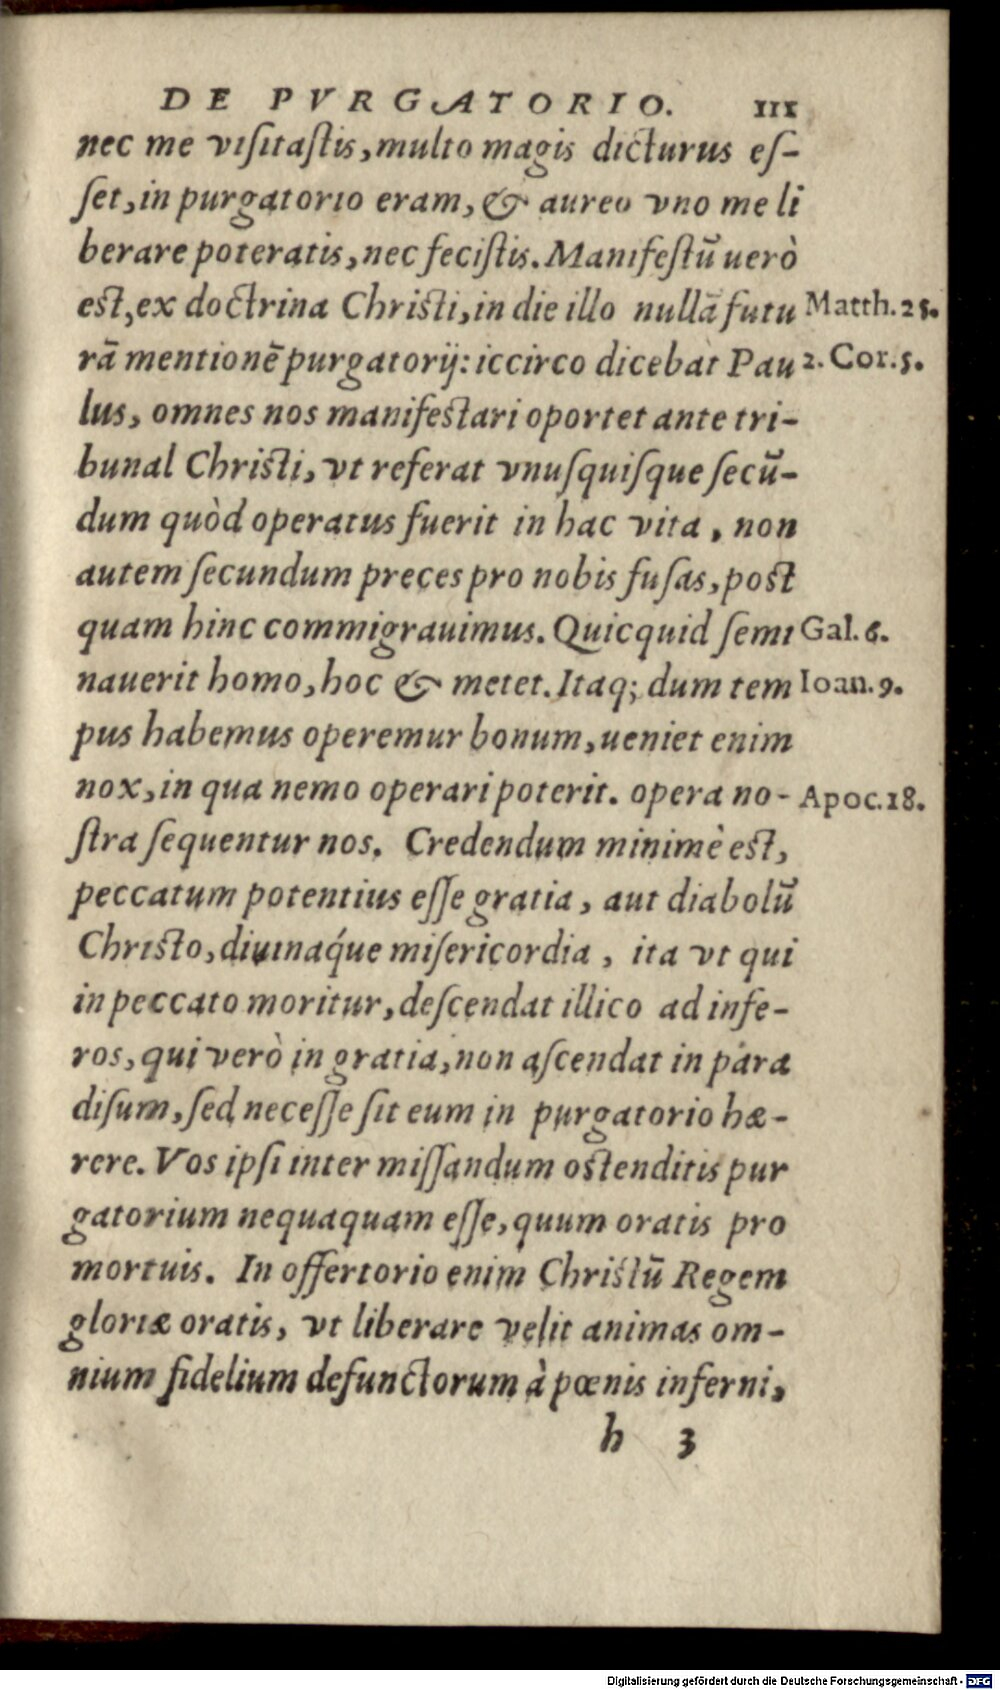 DE PVRGATORIO. 111
nec me viſitaſtis, multo magis dicturus eſ-
ſet, in purgatorio eram, & aureo vno me li
berare poteratis, nec feciſtis. Manifeſtū uerò
est, ex doctrina Christi, in die illo nullā futu Matth. 25.
rā mentionē purgatorij: iccirco dicebat Pau 2. Cor. 5.
lus, omnes nos manifestari oportet ante tri-
bunal Christi, vt referat vnuſquiſque ſecū-
dum quòd operatus fuerit in hac vita, non
autem ſecundum preces pro nobis fuſas, post
quam hinc commigrauimus. Quicquid ſemi Gal. 6.
nauerit homo, hoc & metet. Itaq; dum tem Ioan. 9.
pus habemus operemur bonum, ueniet enim
nox, in qua nemo operari poterit. opera no- Apoc. 18.
ſtra ſequentur nos. Credendum minimè est,
peccatum potentius eſſe gratia, aut diabolū
Christo, diuináque miſericordia, ita vt qui
in peccato moritur, deſcendat illico ad infe-
ros, qui verò in gratia, non aſcendat in para
diſum, ſed neceſſe ſit eum in purgatorio hæ-
rere. Vos ipſi inter miſſandum ostenditis pur
gatorium nequaquam eſſe, quum oratis pro
mortuis. In offertorio enim Christū Regem
gloriæ oratis, vt liberare velit animas om-
nium fidelium defunctorum à pœnis inferni,
h 3
Digitalisierung gefördert durch die Deutsche Forschungsgemeinschaft - DFG